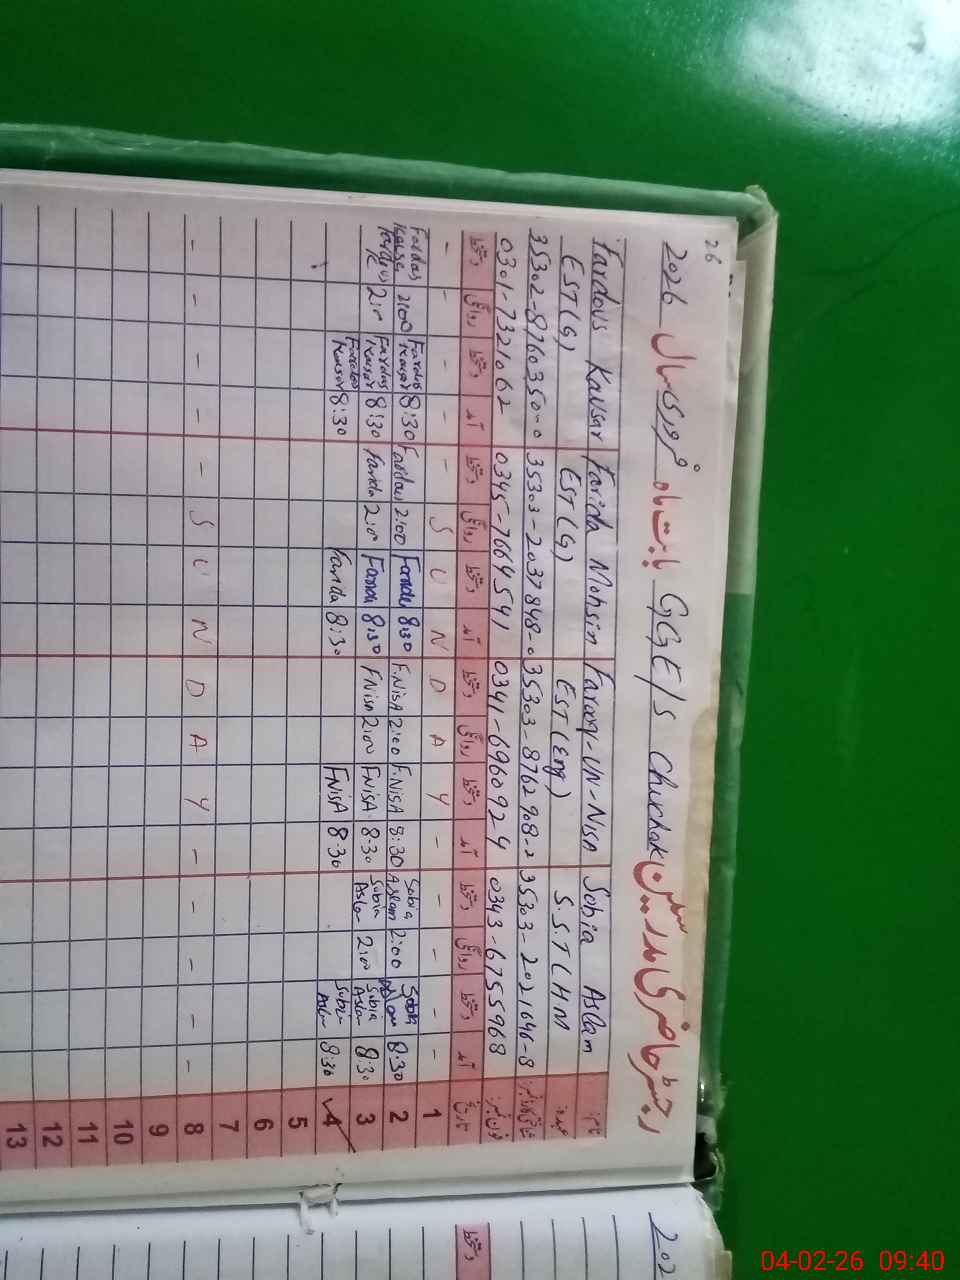 26
رجسٹر حاضری مدرسین سکول GGE/S Churchak بابت ماہ فروری سال 2026
نام: Sobia Aslam Farooq-UN-Nisa Farida Mohsin Fardous Kausar
عہدہ: S.S.T (H)M EST (Eng) EST (G) EST (G)
شناختی کارڈ نمبر: 35303-2021646-8 35303-8762908-2 35303-2037848-0 35302-8760350-0
فون نمبر: 0343-6755968 0341-6960924 0345-7664541 0301-7321062
تاریخ آمد دستخط روانگی دستخط آمد دستخط روانگی دستخط آمد دستخط روانگی دستخط آمد دستخط روانگی دستخط
1 - - - - - Y A D N U S - - - - -
2 8:30 Sobia Aslam 2:00 Sobia Aslam 8:30 F.NisA 2:00 F.NisA 8:30 Farida 2:00 Farida 8:30 Fardos Kausar 2:00 Fardos Kausar
3 8:30 Sobia Asla 2:00 Sobia Asla 8:30 F.NisA 2:00 F.NisA 8:30 Farida 2:00 Farida 8:30 Fardos Kausar 2:00 Fardous K
4 8:30 Sobia Asla 8:30 F.NisA 8:30 Farida 8:30 Fardos Kausar
5
6
7
8 - - - - - Y A D N U S - - - - -
9
10
11
12
13
202
دستخط
04-02-26 09:40